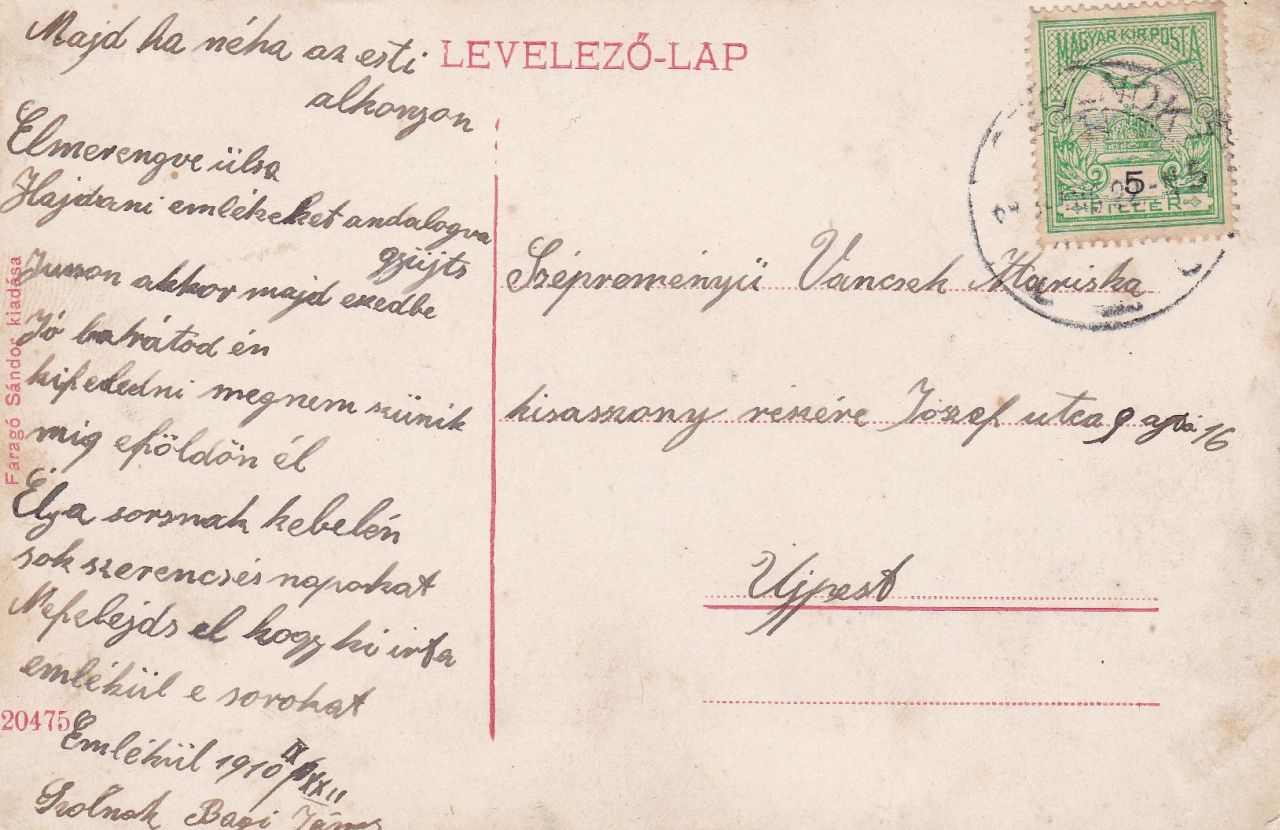 Majd ha néha az esti
alkonyon
Elmerengve ülsz
Hajdani emlékeket andalogva
gyüjts
Jusson akkor majd eszedbe
Jó barátod én
kifeledni megnem szünik
mig eföldön él
Élj a sorsnak kebelén
sok szerencsés napokat
Nefelejds el hogy ki irta
emlékül e sorokat
Emlékül 1910 IX/XXII
Szolnok Bagi János
Faragó Sándor kiadása
20475
LEVELEZŐ-LAP
MAGYAR KIR. POSTA
5 5
FILLÉR
Szépreményü Vancsek Mariska
kisasszony reszére József utca 9 ajtó 16
Újpest